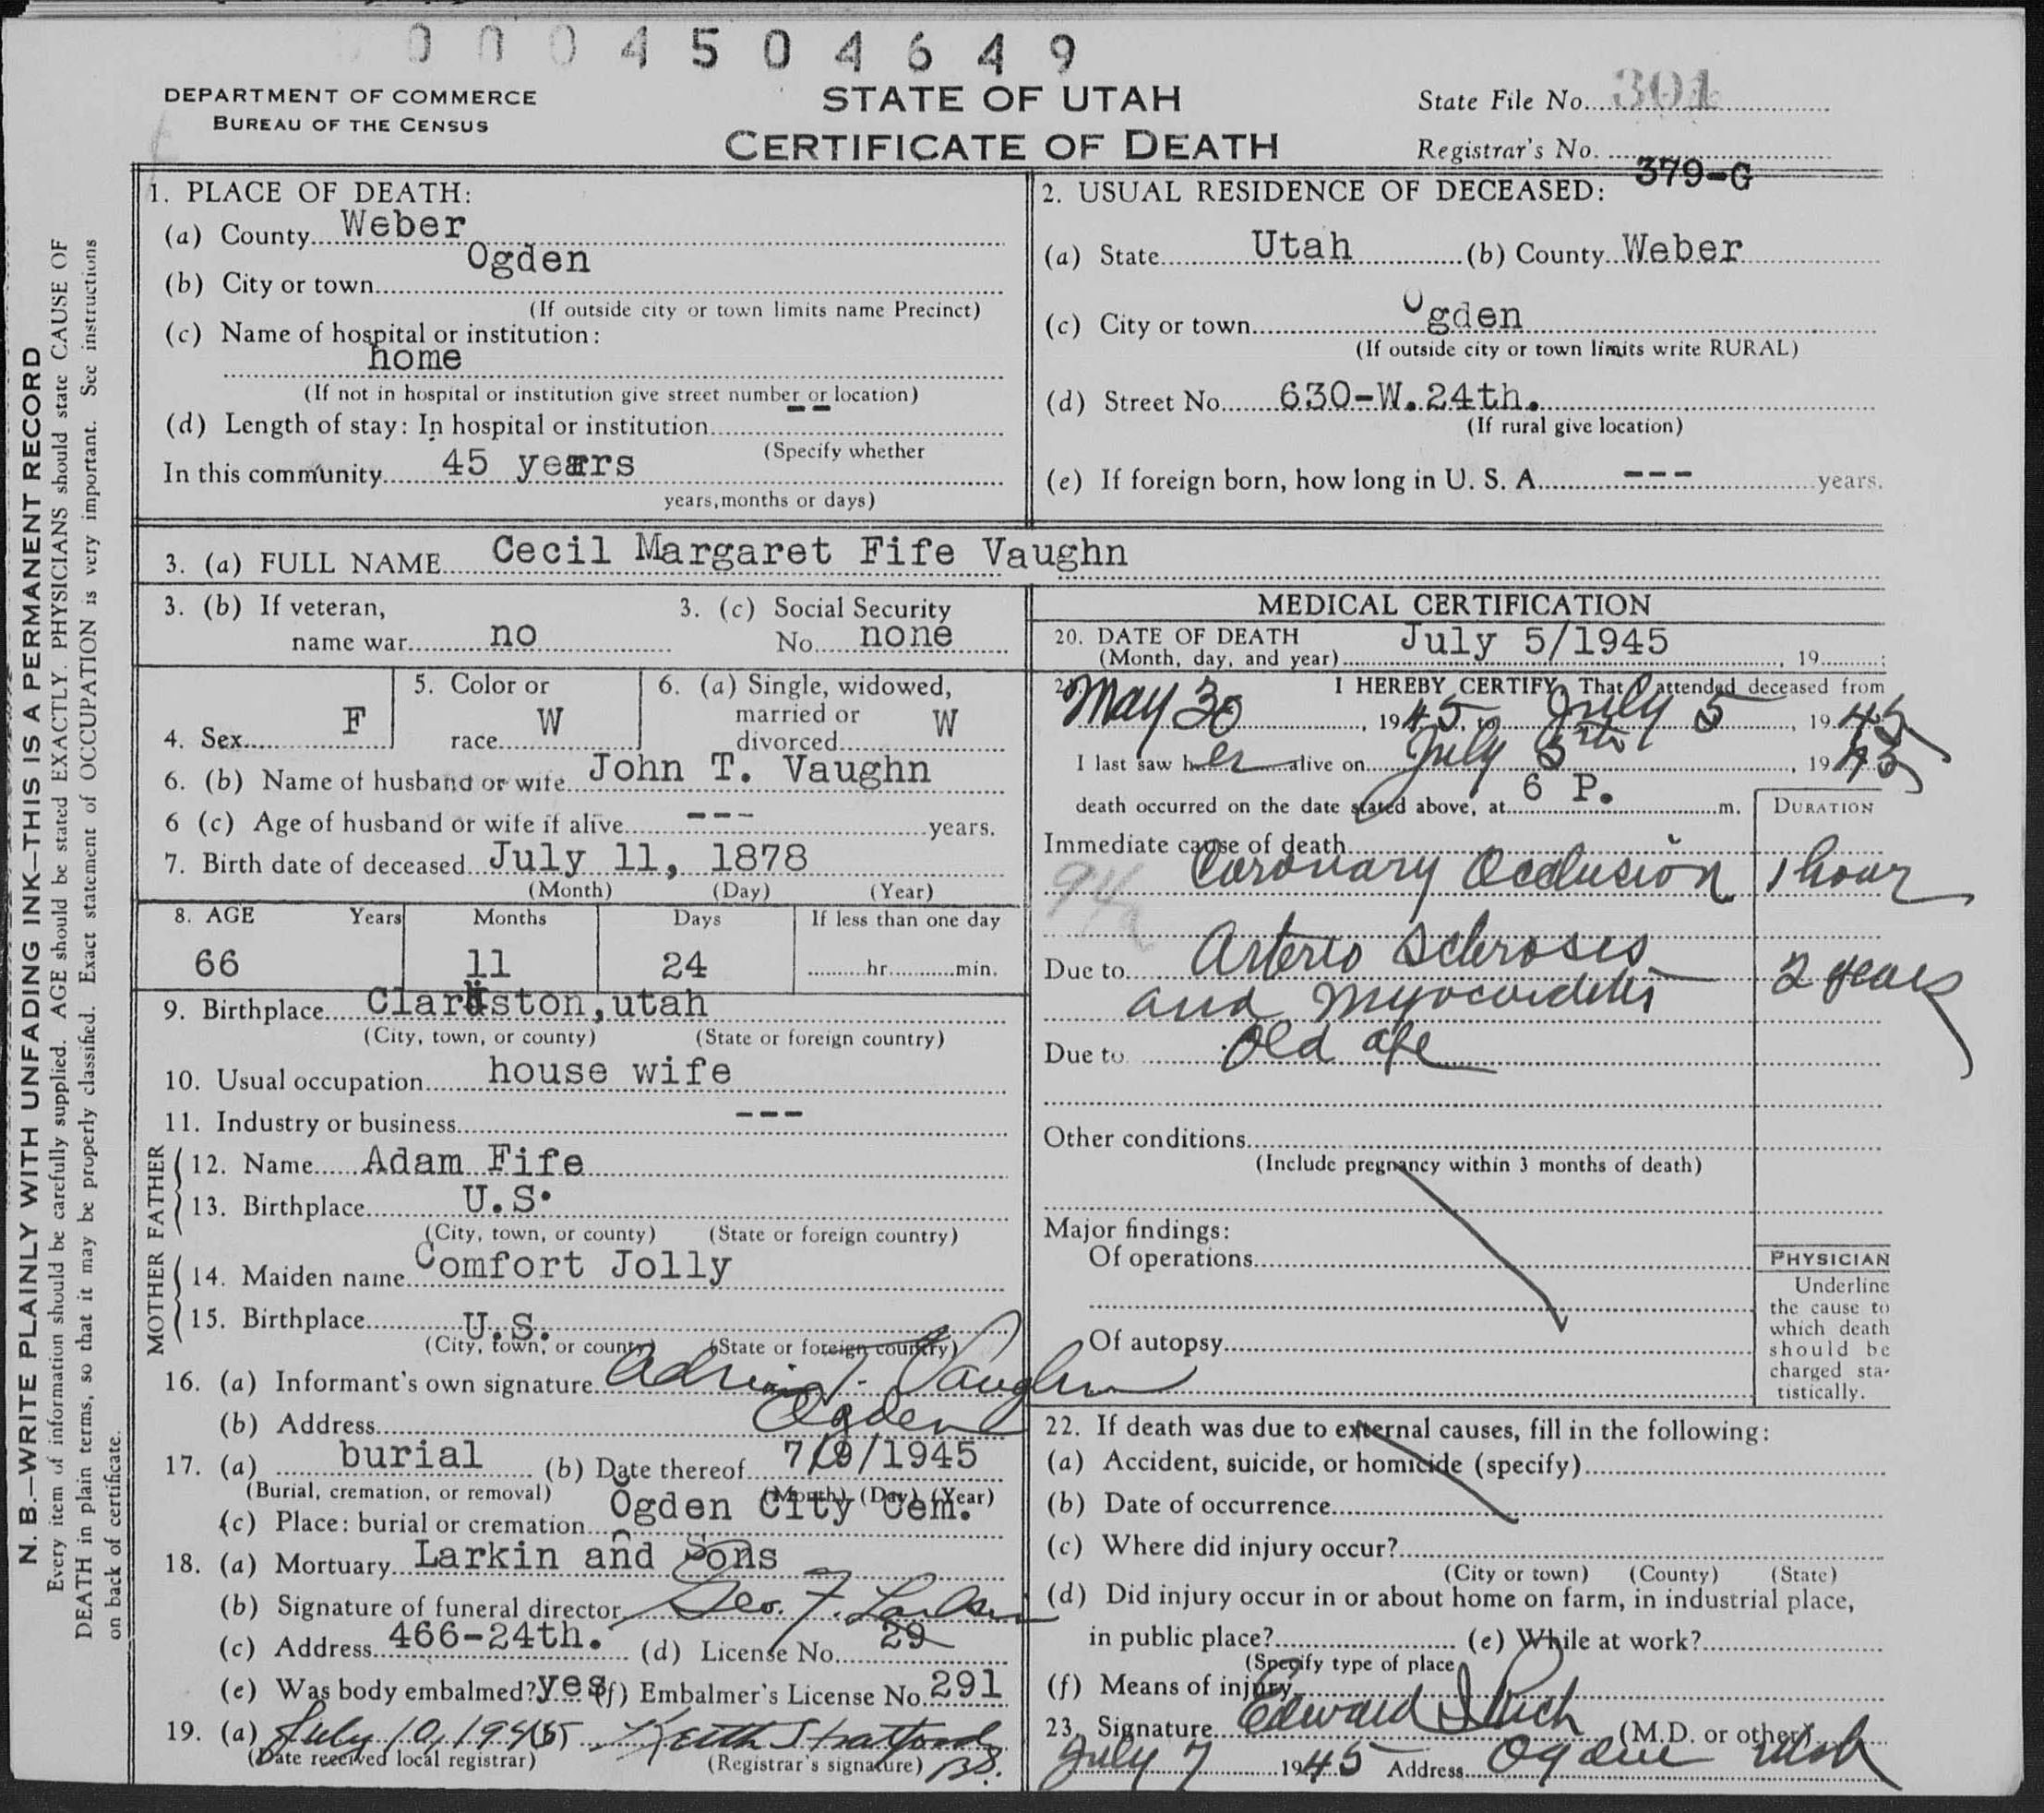 0004504649
DEPARTMENT OF COMMERCE
BUREAU OF THE CENSUS
STATE OF UTAH
CERTIFICATE OF DEATH
State File No. 301
Registrar's No. 379-G
N. B.—WRITE PLAINLY WITH UNFADING INK—THIS IS A PERMANENT RECORD
Every item of information should be carefully supplied. AGE should be stated EXACTLY. PHYSICIANS should state CAUSE OF
DEATH in plain terms, so that it may be properly classified. Exact statement of OCCUPATION is very important. See instructions
on back of certificate.
1. PLACE OF DEATH:
(a) County Weber
(b) City or town Ogden
(If outside city or town limits name Precinct)
(c) Name of hospital or institution:
home
(If not in hospital or institution give street number or location)
(d) Length of stay: In hospital or institution -- 
(Specify whether
In this community 45 years
years, months or days)
2. USUAL RESIDENCE OF DECEASED:
(a) State Utah (b) County Weber
(c) City or town Ogden
(If outside city or town limits write RURAL)
(d) Street No. 630-W.24th.
(If rural give location)
(e) If foreign born, how long in U. S. A. --- years.
3. (a) FULL NAME Cecil Margaret Fife Vaughn
3. (b) If veteran,
name war no
3. (c) Social Security
No. none
4. Sex F
5. Color or
race W
6. (a) Single, widowed,
married or
divorced W
6. (b) Name of husband or wife John T. Vaughn
6 (c) Age of husband or wife if alive --- years.
7. Birth date of deceased July 11, 1878
(Month) (Day) (Year)
8. AGE Years Months Days If less than one day
66 11 24 hr. min.
9. Birthplace Clarkston,utah
(City, town, or county) (State or foreign country)
10. Usual occupation house wife
11. Industry or business ---
FATHER
12. Name Adam Fife
13. Birthplace U.S.
(City, town, or county) (State or foreign country)
MOTHER
14. Maiden name Comfort Jolly
15. Birthplace U.S.
(City, town, or county) (State or foreign country)
16. (a) Informant's own signature Vaughn
(b) Address Ogden
17. (a) burial (b) Date thereof 7/9/1945
(Burial, cremation, or removal) (Month) (Day) (Year)
(c) Place: burial or cremation Ogden City Cem.
18. (a) Mortuary Larkin and Sons
(b) Signature of funeral director Geo. F. Larkin
(c) Address 466-24th. (d) License No. 29
(e) Was body embalmed? yes (f) Embalmer's License No. 291
19. (a) July 10, 1945 Keith Stratford
(Date received local registrar) (Registrar's signature) BS.
MEDICAL CERTIFICATION
20. DATE OF DEATH July 5/1945
(Month, day, and year) , 19 ;
21. I HEREBY CERTIFY, That I attended deceased from
May 30, 1945, to July 5, 1945
I last saw her alive on July 5th, 1945
death occurred on the date stated above, at 6 P. m.
DURATION
Immediate cause of death
Coronary Occlusion 1 hour
94a
Due to Arterio Sclerosis 2 years
and Myocarditis
Due to Old age
Other conditions
(Include pregnancy within 3 months of death)
Major findings:
Of operations
Of autopsy
PHYSICIAN
Underline
the cause to
which death
should be
charged sta-
tistically.
22. If death was due to external causes, fill in the following:
(a) Accident, suicide, or homicide (specify)
(b) Date of occurrence
(c) Where did injury occur?
(City or town) (County) (State)
(d) Did injury occur in or about home on farm, in industrial place,
in public place? (e) While at work?
(Specify type of place
(f) Means of injury
23. Signature Edward I Rich (M.D. or other)
July 7 1945 Address Ogden Utah